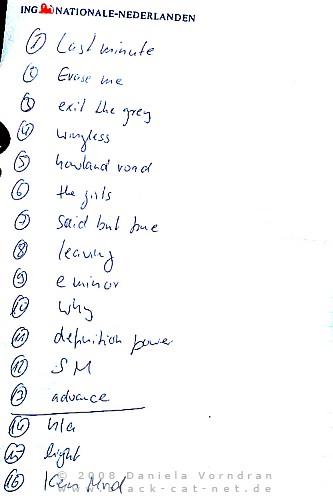 ING NATIONALE-NEDERLANDEN
1 Last minute
2 Erase me
3 exit the grey
4 wingless
5 howland road
6 the girls
7 said but true
8 leaving
9 e minor
10 why
11 definition power
12 SM
13 advance
14
15 light
16
© 2008 Daniela Vorndran
www.black-cat-net.de